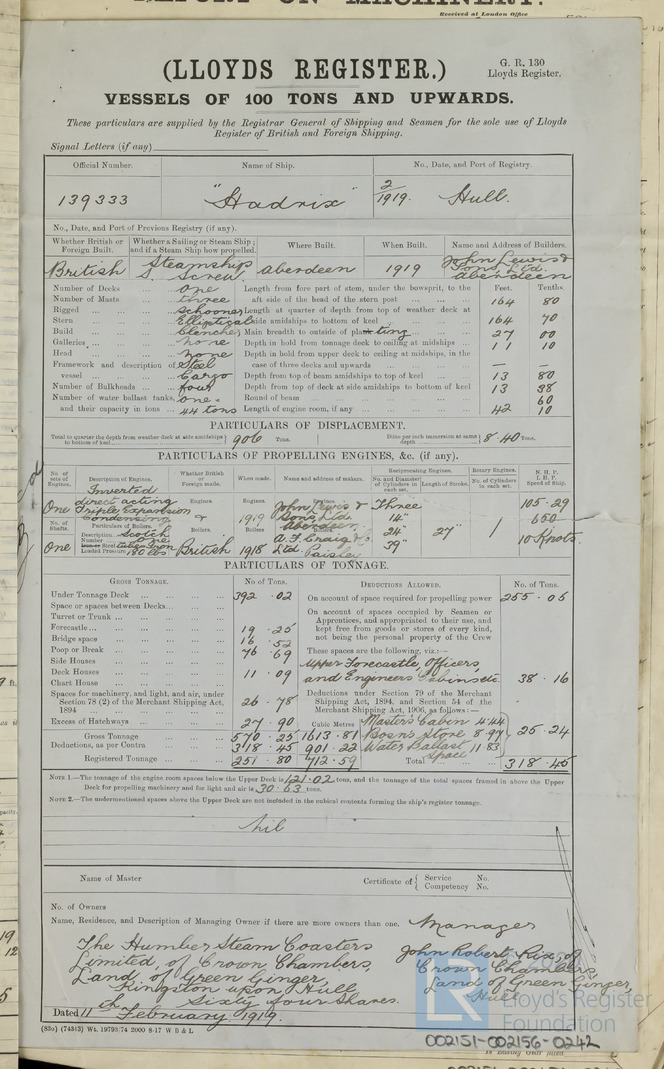 REPORT ON MACHINERY.
Received at London Office
(LLOYDS REGISTER.)
G. R. 130
Lloyds Register.
VESSELS OF 100 TONS AND UPWARDS.
These particulars are supplied by the Registrar General of Shipping and Seamen for the sole use of Lloyds
Register of British and Foreign Shipping.
Signal Letters (if any)
Official Number. Name of Ship. No., Date, and Port of Registry.
139333 "Hadrix" 2/1919. Hull.
No., Date, and Port of Previous Registry (if any).
Whether British or Foreign Built. Whether a Sailing or Steam Ship; and if a Steam Ship how propelled. Where Built. When Built. Name and Address of Builders.
British Steamship S. Screw Aberdeen 1919 John Lewis & Sons, Ltd. Aberdeen
Number of Decks one Length from fore part of stem, under the bowsprit, to the Feet. Tenths.
Number of Masts three aft side of the head of the stern post 164 80
Rigged Schooner Length at quarter of depth from top of weather deck at
Stern Elliptical side amidships to bottom of keel 164 70
Build Clencher Main breadth to outside of plating 27 00
Galleries none Depth in hold from tonnage deck to ceiling at midships 11 10
Head none Depth in hold from upper deck to ceiling at midships, in the
Framework and description of Steel case of three decks and upwards — —
vessel Cargo Depth from top of beam amidships to top of keel 13 80
Number of Bulkheads four Depth from top of deck at side amidships to bottom of keel 13 38
Number of water ballast tanks, one. Round of beam 60
and their capacity in tons 44 tons Length of engine room, if any 42 10
PARTICULARS OF DISPLACEMENT.
Total to quarter the depth from weather deck at side amidships to bottom of keel 906 Tons. Ditto per inch immersion at same depth 8.40 Tons.
PARTICULARS OF PROPELLING ENGINES, &c. (if any).
No. of sets of Engines. Description of Engines. Whether British or Foreign made. When made. Name and address of makers. Reciprocating Engines. Rotary Engines. N. H. P. I. H. P. Speed of Ship.
No. and Diameter of Cylinders in each set. Length of Stroke. No. of Cylinders in each set.
One Inverted direct acting Triple Expansion Condensing Engines. Engines. 1919 Engines. John Lewis & Sons, Ltd. Aberdeen Three 14" 24" 39" 27" 105.29 650 10 Knots.
No. of Shafts. Particulars of Boilers. Boilers. Boilers
One Description Scotch Number one Iron or Steel Loaded Pressure 180 lbs British 1918 A. F. Craig & Co. Ltd. Paisley
PARTICULARS OF TONNAGE.
GROSS TONNAGE. No of Tons. DEDUCTIONS ALLOWED. No. of Tons.
Under Tonnage Deck 392.02 On account of space required for propelling power 255.05
Space or spaces between Decks On account of spaces occupied by Seamen or
Turret or Trunk Apprentices, and appropriated to their use, and
Forecastle 19.25 kept free from goods or stores of every kind,
Bridge space 16.52 not being the personal property of the Crew
Poop or Break 76.69 These spaces are the following, viz.:—
Side Houses Upper Forecastle, Officers
Deck Houses 11.09 and Engineers Cabins etc. 38.16
Chart House
Spaces for machinery, and light, and air, under Section 78 (2) of the Merchant Shipping Act, 1894 26.78
Deductions under Section 79 of the Merchant Shipping Act, 1894, and Section 54 of the Merchant Shipping Act, 1906, as follows:—
Excess of Hatchways 27.90 Cubic Metres Master's Cabin 4.44
Gross Tonnage 570.25 1613.81 Bosn's Store 8.97 25.24
Deductions, as per Contra 318.45 901.22 Water Ballast Space 11.83
Registered Tonnage 251.80 712.59 Total 318.45
NOTE 1.—The tonnage of the engine room spaces below the Upper Deck is 121.02 tons, and the tonnage of the total spaces framed in above the Upper
Deck for propelling machinery and for light and air is 30.63 tons.
NOTE 2.—The undermentioned spaces above the Upper Deck are not included in the cubical contents forming the ship's register tonnage.
Nil
Name of Master Certificate of { Service No. Competency No.
No. of Owners
Name, Residence, and Description of Managing Owner if there are more owners than one. Manager
The Humber Steam Coasters John Robert Rix, of
Limited, of Crown Chambers, Crown Chambers,
Land of Green Ginger, Land of Green Ginger,
Kingston upon Hull, Hull
Sixty four Shares.
Dated 11th February 1919.
(83o) (74313) Wt. 19793/74 2000 8-17 W B & L
Lloyd's Register
Foundation
002151-002156-0242